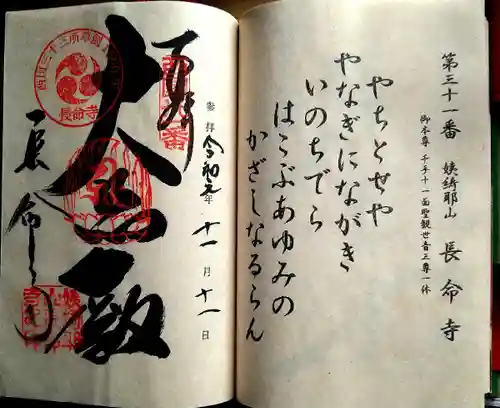 第三十一番 姨綺耶山 長命寺
御本尊 千手十一面聖観世音三尊一体
やちとせや
やなぎにながき
いのちでら
はこぶあゆみの
かざしなるらん
奉拝
参拝 令和元年 十一月十一日
大悲殿
長命寺